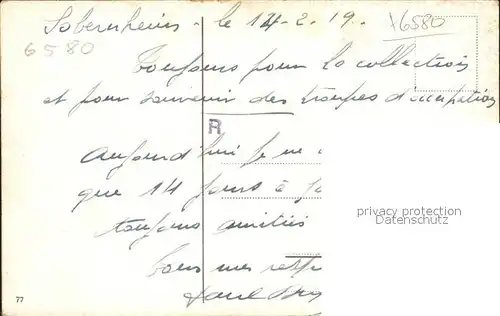 Sobernheim - le 14-2.19.
+6580
6580
Toujours pour la collection
et pour souvenir des troupes d'occupation
R
Aujourd'hui je ne
que 14 jours à
toujours amitiés
privacy protection
Datenschutz
Bons mes
Paul
77